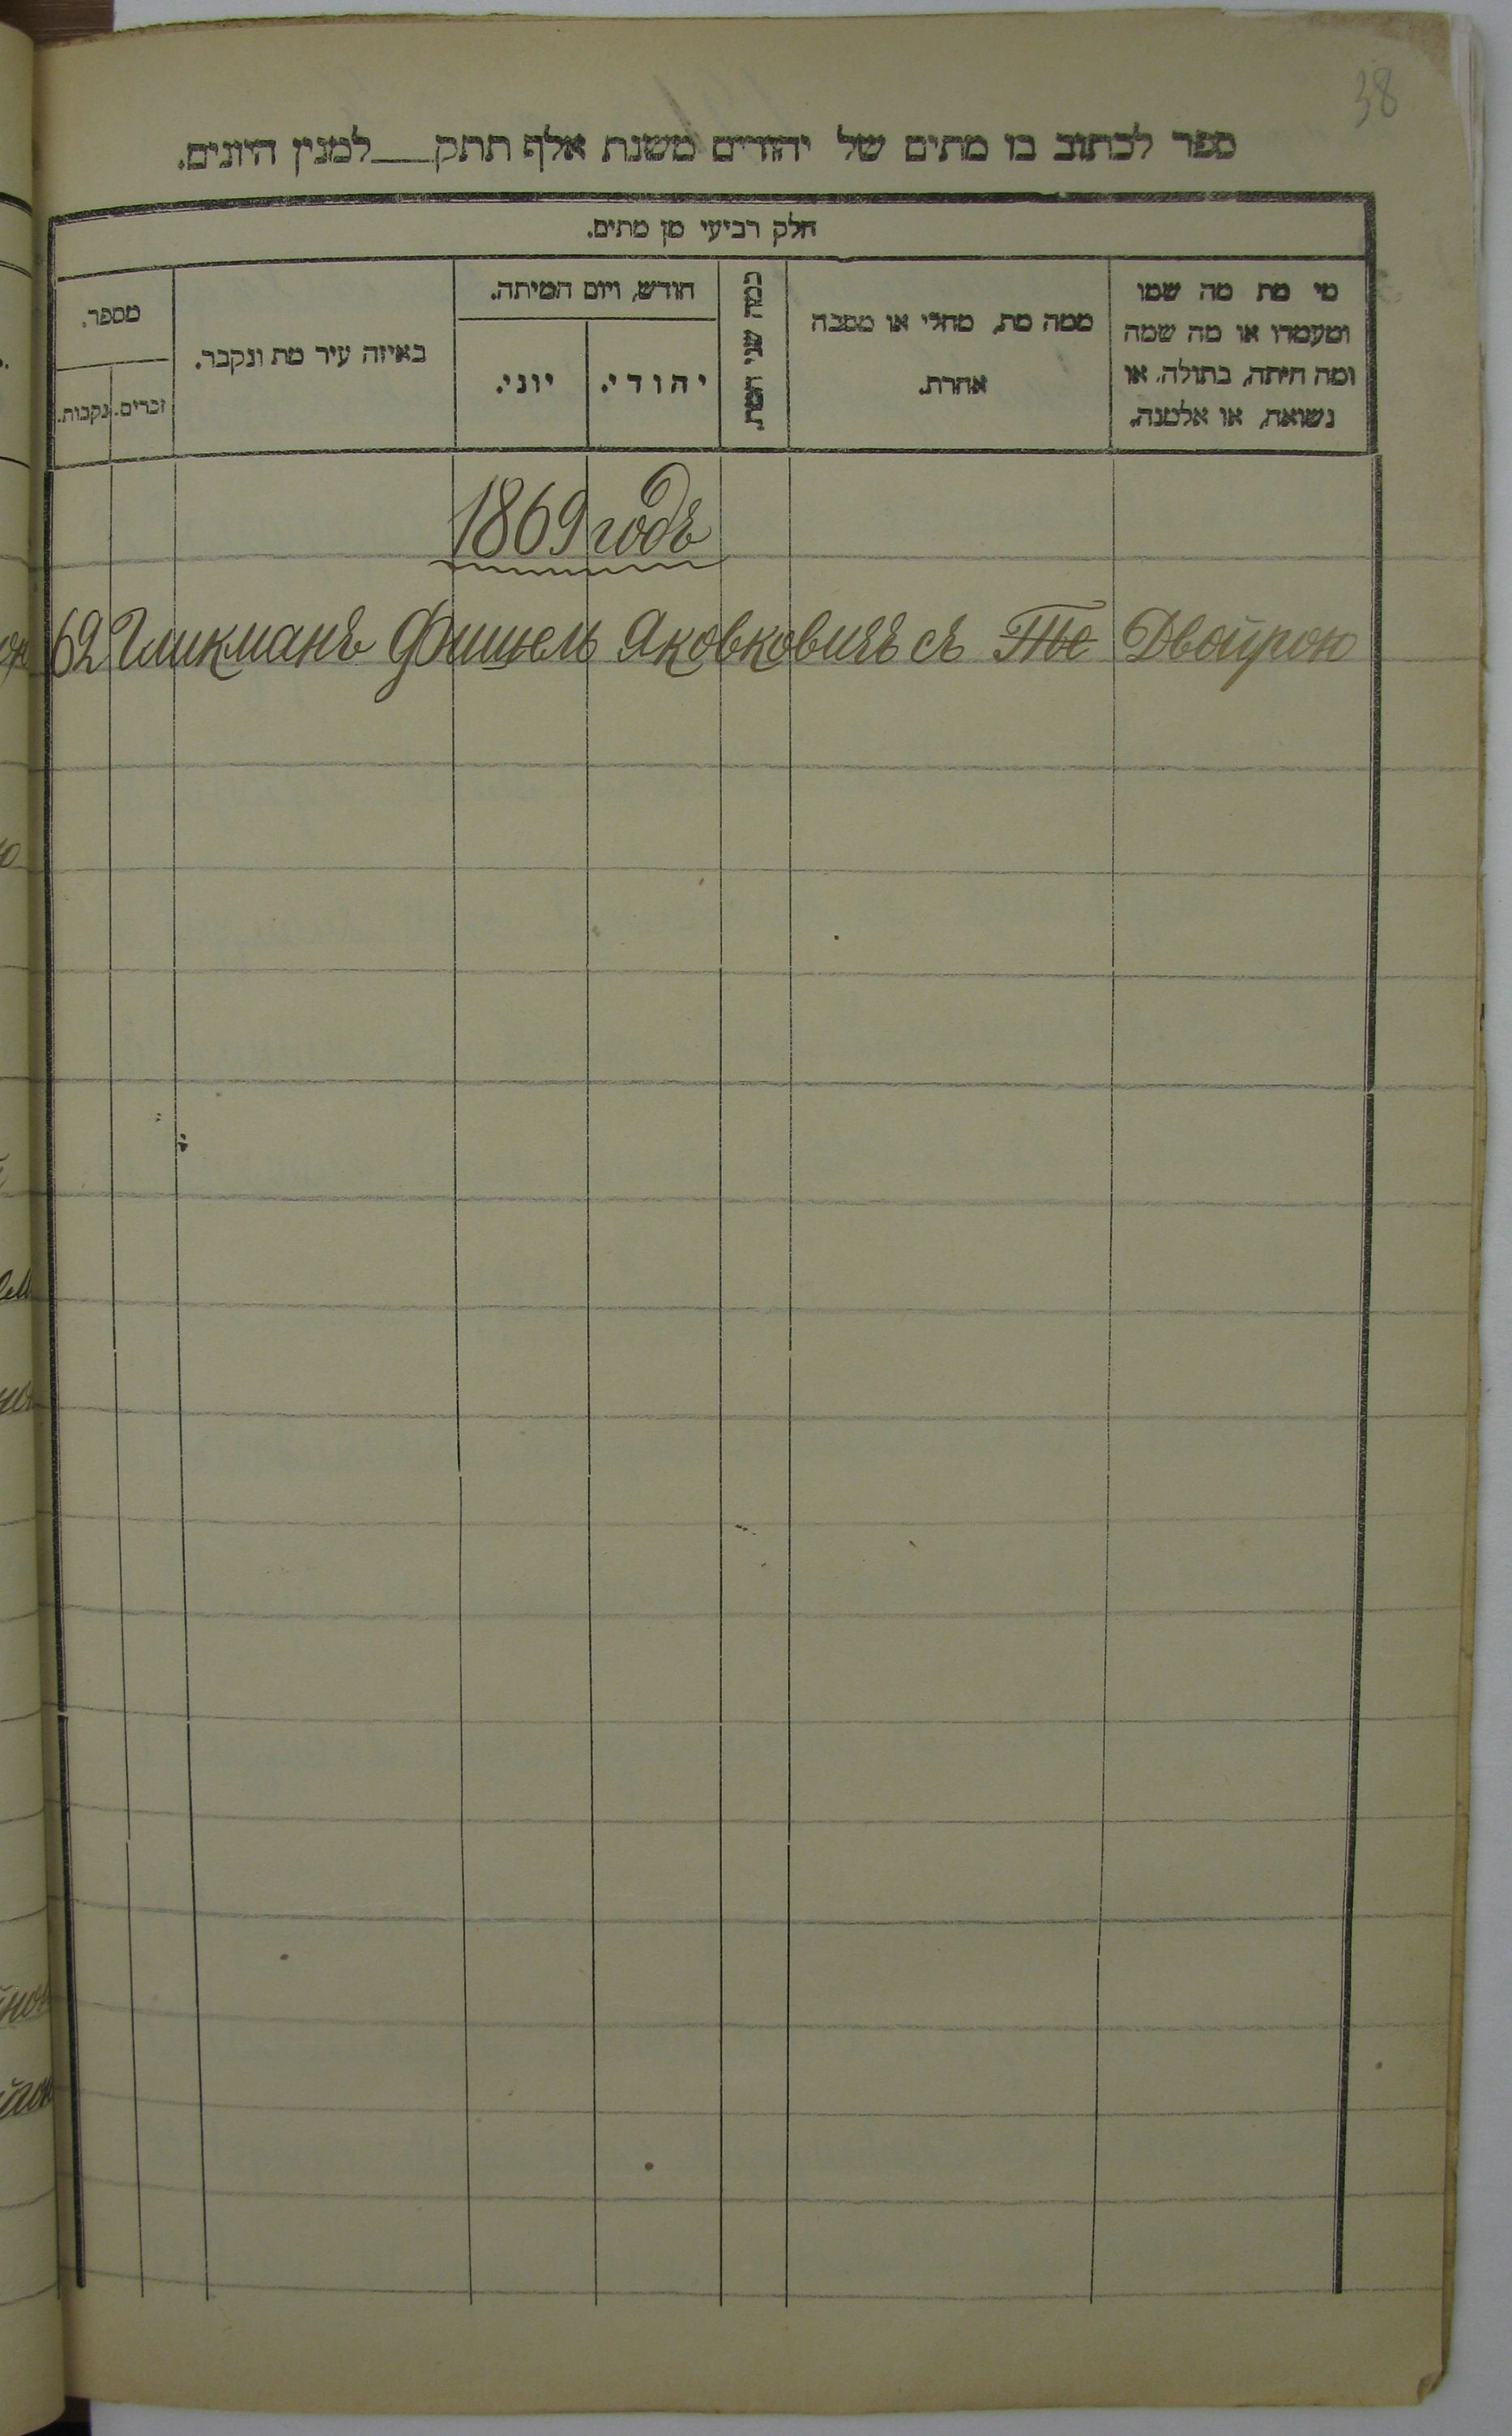 38
ספר לכתוב בו מתים של יהודים משנת אלף תתק___למנין היונים.
חלק רביעי מן מתים.
מי מת מה שמו
ומעמדו או מה שמה
ומה היתה, בתולה, או
נשואה, או אלמנה.
ממה מת, מחלי או מסבה
אחרת.
כמה שני המת.
חודש, ויום המיתה.
יהודי.
יוני.
באיזה עיר מת ונקבר.
מספר.
זכרים.
נקבות.
1869 годъ
62 Гликманъ Фишель Яковковичъ съ Двойрою